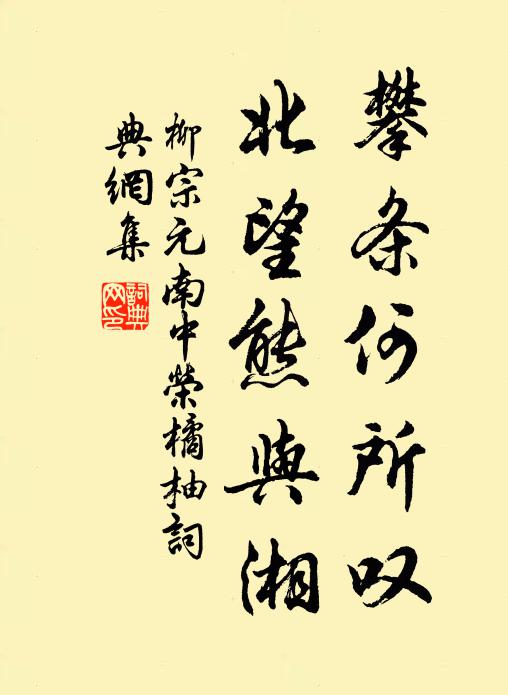 攀条何所叹
北望熊與湘
柳宗元南中榮橘柚詞
典網集
詞典网印